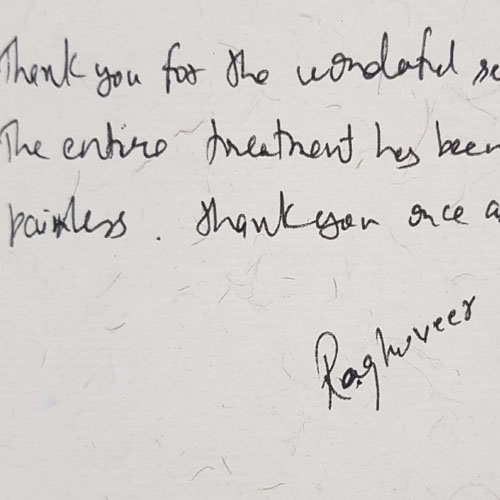 Thank you for the wondeful se
The entire treatment has been
painless. Thank you once a
Raghuveer